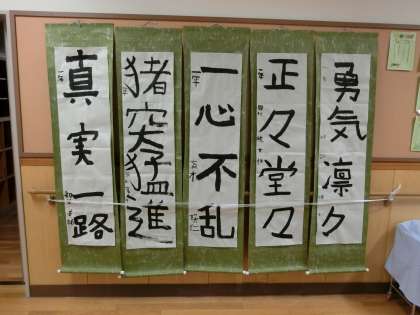 勇気凛々
正々堂々
一心不乱
猪突猛進
真実一路